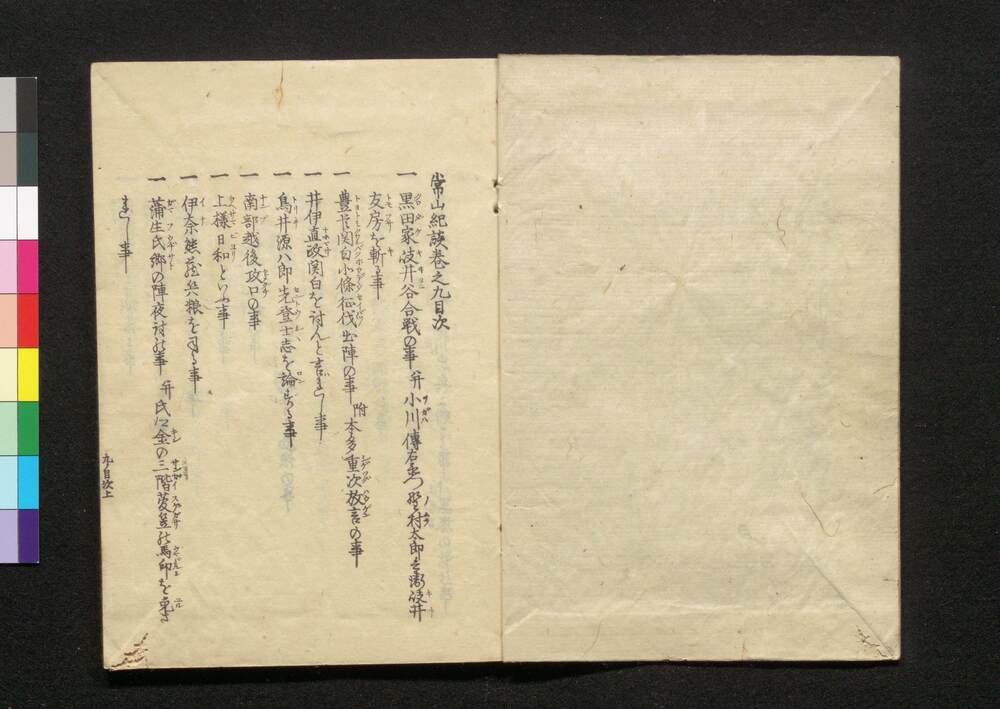 常山紀談巻之九目次
一 黒田家岐井谷合戦の事 并 小川傳右衛門野村太郎兵衛岐井
友房を斬る事
一 豊臣関白小田原征伐出陣の事 附 本多重次放言の事
一 井伊直政関白を討んと言れし事
一 鳥井源八郎先登士志を論ずる事
一 南部越後攻口の事
一 上様日和といふ事
一 伊奈熊蔵兵粮を
一 蒲生氏郷の陣夜討の事 并 氏郷金の三階菅笠の馬印を
れし事
九ノ目次上